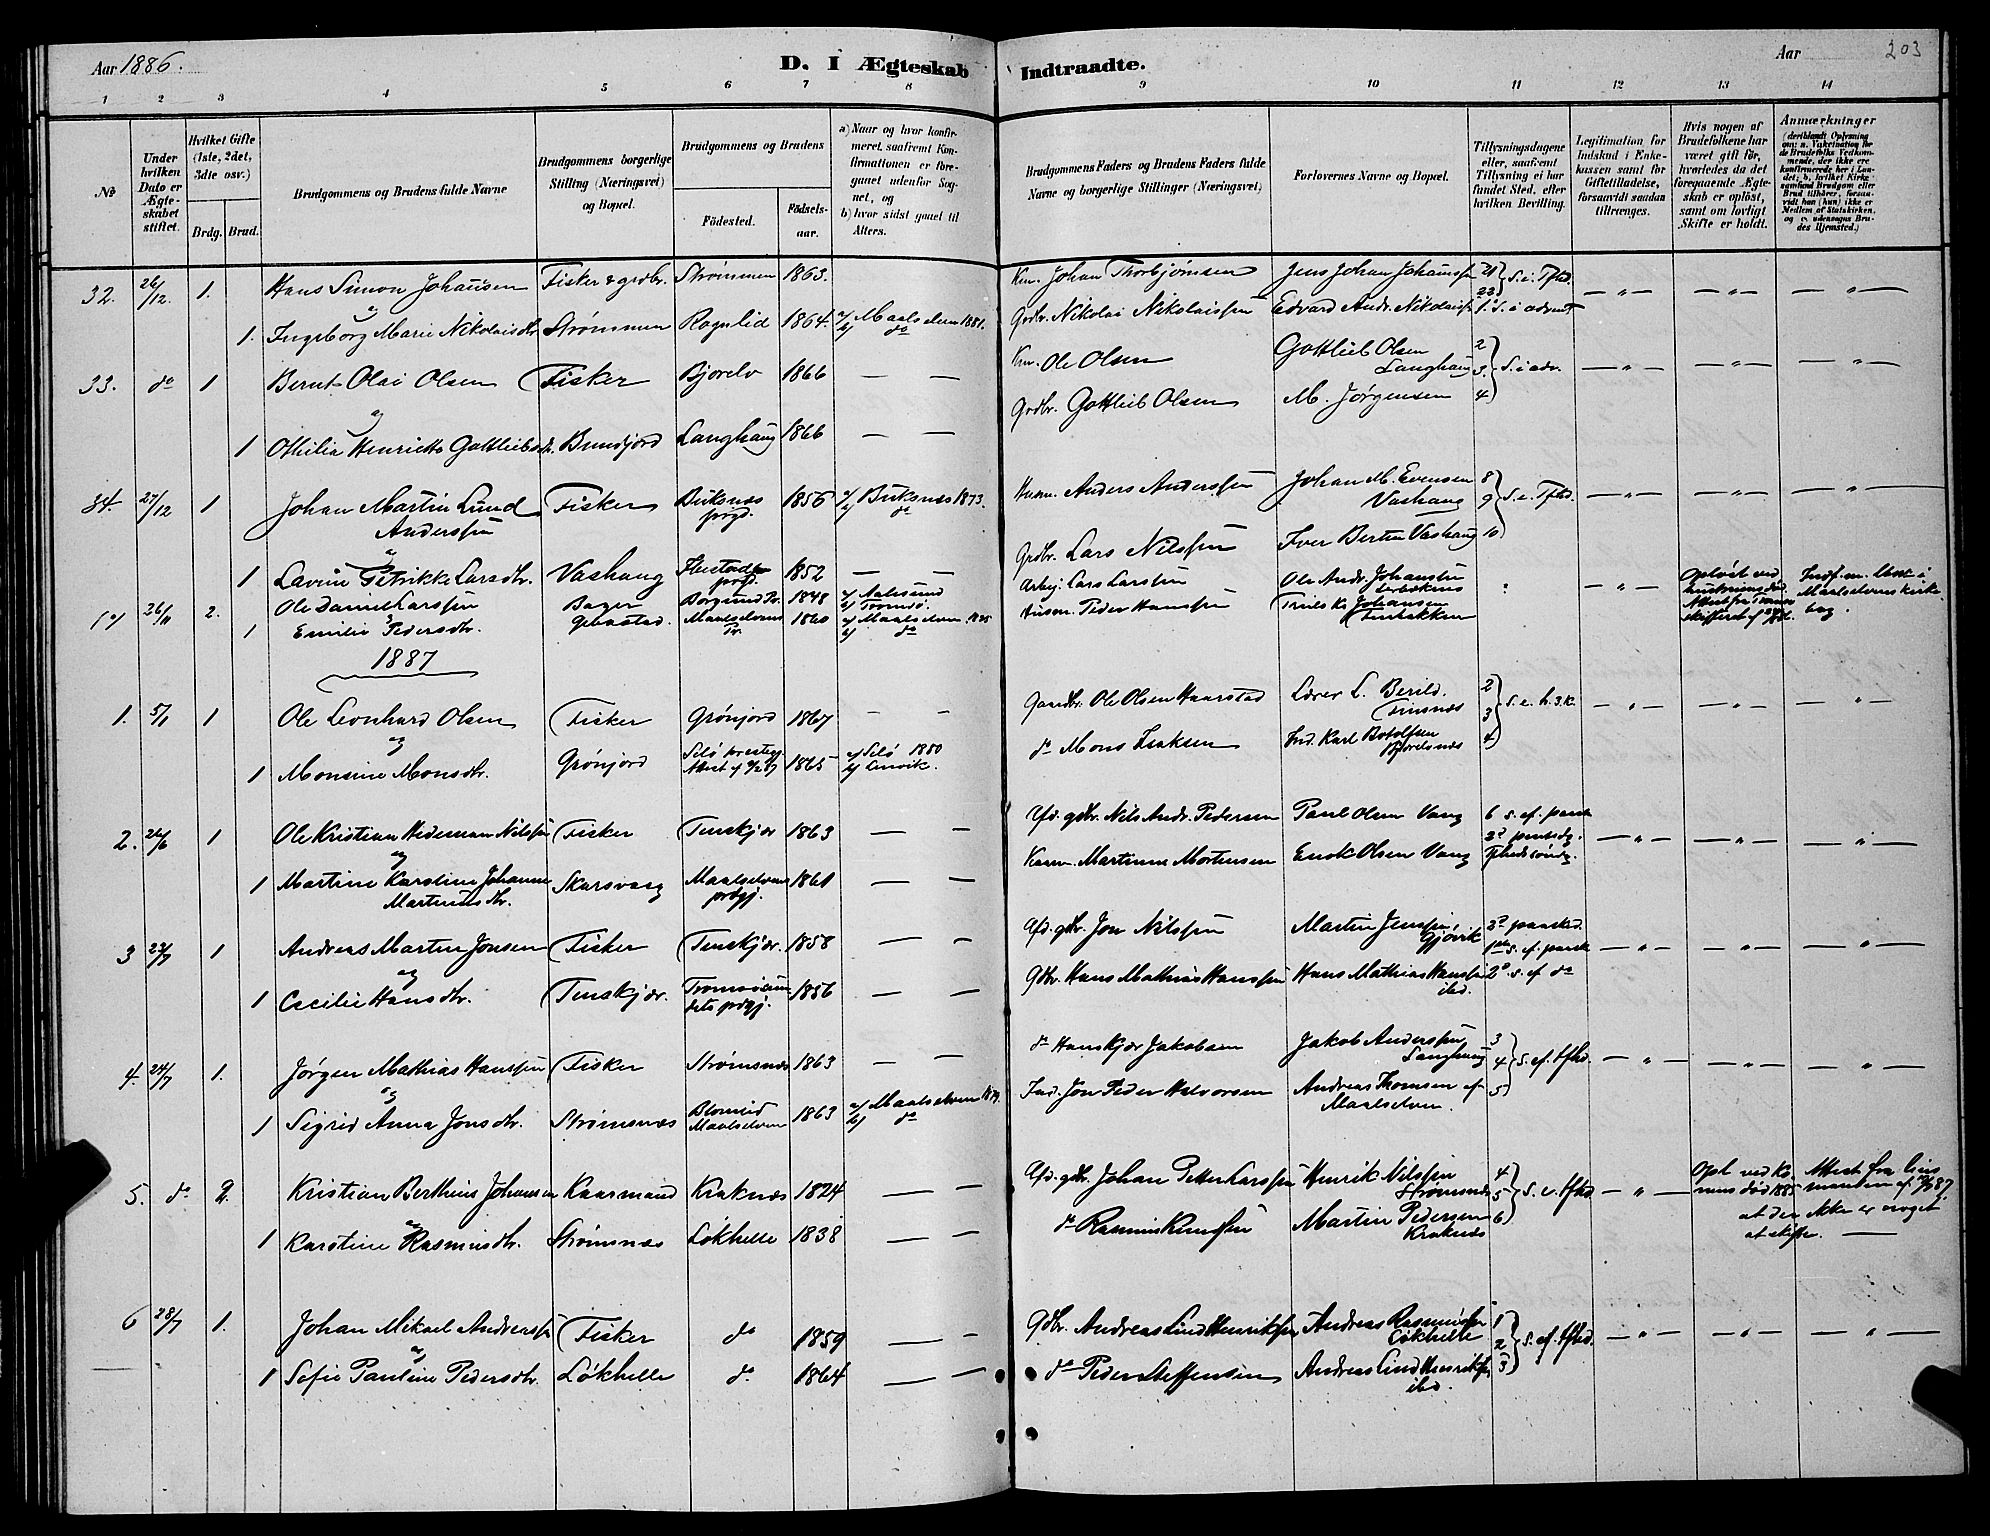 Aar 1886.
D. I Ægteskab Indtraadte.
Aar 203
1 2 3 4 5 6 7 8 9 10 11 12 13 14
No
Under hvilken Dato er Ægteskabet stiftet.
Hvilket Gifte (1ste, 2det, 3die osv.)
Brdg. Brud.
Brudgommens og Brudens fulde Navne
Brudgommens borgerlige Stilling (Næringsvei) og Bopæl.
Brudgommens og Brudens
Fødested. Fødsels-aar.
a) Naar og hvor konfirmeret, saafremt Konfirmationen er foregaaet udenfor Sognet, og
b) hvor sidst gaaet til Alters.
Brudgommens Faders og Brudens Faders fulde Navne og borgerlige Stillinger (Næringsvei)
Forlovernes Navne og Bopæl.
Tillysningsdagene eller, saafremt Tillysning ei har fundet Sted, efter hvilken Bevilling.
Legitimation for Indskud i Enkekassen samt for Giftetilladelse, forsaavidt saadan tiltrænges.
Hvis nogen af Brudefolkene har været gift før, hvorledes da det foregaaende Ægteskab er opløst, samt om lovligt Skifte er holdt.
Anmærkninger
32. 26/12. 1. Hans Simon Johansen Fisker & grdbr. Strømmen 1863. Johan Thorbjørnsen Jens Johan Johanssen 21 22 S. e. Tfhd. — " — — " — — " —
og
1. Ingeborg Marie Nikolaisdtr. Strømmen Rognlid 1864. a/ Maalselven 1881. b/ do Grdbr. Nikolai Nikolaissen Edvard Andr. Nikolaiss. 1. S. i advent
33. do 1 Bernt Olai Olsen Fisker Bjorelv 1866 — — Ole Olsen Gottlieb Olsen Langhaug 2 3 4 S. i adv. — " — — " — — " —
og
1 Othilia Henriette Gottliebsdtr. Bundjord Langhaug 1866 — — Grdbr. Gottlieb Olsen M. Jørgensen
34. 27/12 1 Johan Martin Lund Anderssen Fisker Buksnæs prgd. 1856 a/ Buksnæs 1873. b/ do Husm. Anders Anderssen Johan M. Evensen Vashaug 8 9 10 S. e. Tfhd. — " — — " — — " —
og
1 Lavine Petrikke Larsdtr. Vashaug Ibestad prgd. 1852 — — Grdbr. Lars Nilssen Iver Bertin Vashaug
26/11 2. Ole Daniel Larssen Bager Borgund Pr. 1848 a/ Aalesund b/ Tromsø. Arbej. Lars Larssen Ole Andr. Johanssen — " — Opløst ved Indf. m. i Maalselvens kirkebog
1 Emilie Pedersdtr. Gibostad. Maalselvens Pr. 1860 a/ Maalselven 1875 b/ do Peder Hanssen Johansen Finbakken
1887
1. 5/1 1 Ole Leonhard Olsen Fisker Grønjord 1867 — — Gaardbr. Ole Olsen Haarstad Lærer L. Berild. Finsnæs 2 3 4 S. e. h. 3. k. — " — — " — — " —
og
1 Monsine Monsdtr. Grønjord 1865 a/ 1880 b/ Lenvik. do Mons Isaksen Ind. Karl Botolfsen Bjorelsnæs
2. 26/6 1 Ole Kristian Hedeman Nilssen Fisker Finskjær 1863 — — Afd. gdbr. Nils Andr. Pedersen Paul Olsen Vang 6 s. ef. paask 2d pintsdg. — " — — " — — " —
og
1 Martine Karoline Johanne Martinusdtr. Skarsvaag Maalselvens prdgj. 1861 — — Martinus Mortensen Enok Olsen Vang Tfhedssøndg.
3 23/7 1 Andreas Martin Jonsen Fisker Finskjær. 1858 — — Afd. gdbr. Jon Nilssen Martin Jenssen, Gjøvik 2d paasked. 1ste s. ef. paask — " — — " — — " —
og
1 Cecilie Hansdtr. Finskjær. Tromsøsundets prdgj. 1856 — — Gdbr. Hans Mathias Hanssen Hans Mathias Hanssen ibd. 2d s. ef do
4. 24/7 1. Jørgen Mathias Hanssen Fisker Strømsnæs 1863 — — do Hans Kjær Jakobsen Jakob Anderssen, Langhaug 3 4 5 S. ef. tfhd. — " — — " — — " —
og
1 Sigrid Anna Jonsdtr. Strømsnæs Blomlid Maalselven 1863 a/ Maalselven 1879. b/ do Ind. Jon Peder Halvorsen Andreas Thomsen af Maalselven.
5. do 2. Kristian Berthius Johansen Kaarmand Kraknæs 1824 — — Afd. gdbr. Johan Petter Larssen Henrik Nilssen Strømsnæs 4 5 6 S. e. tfhd. — " — Opl. ved konens død 1885 Attest fra lensmanden af /87 at der ikke er noget at skifte. —
og
1 Karoline Rasmusdtr. Strømsnæs Løkhelle 1838 — — do Rasmus Knutssen Martin Pedersen Kraknæs
6 28/7 1. Johan Mikael Andreassen Fisker do 1859 — — Gdbr. Andreas Lind Henriksen Andreas Rasmussen Løkhelle 1 2 3 S. ef. tfhd. — " — — " — — " —
og
1 Sofie Pauline Pedersdtr. Løkhelle do 1864 — — do Peder Steffensen Andreas Lind Henriksen ibd.